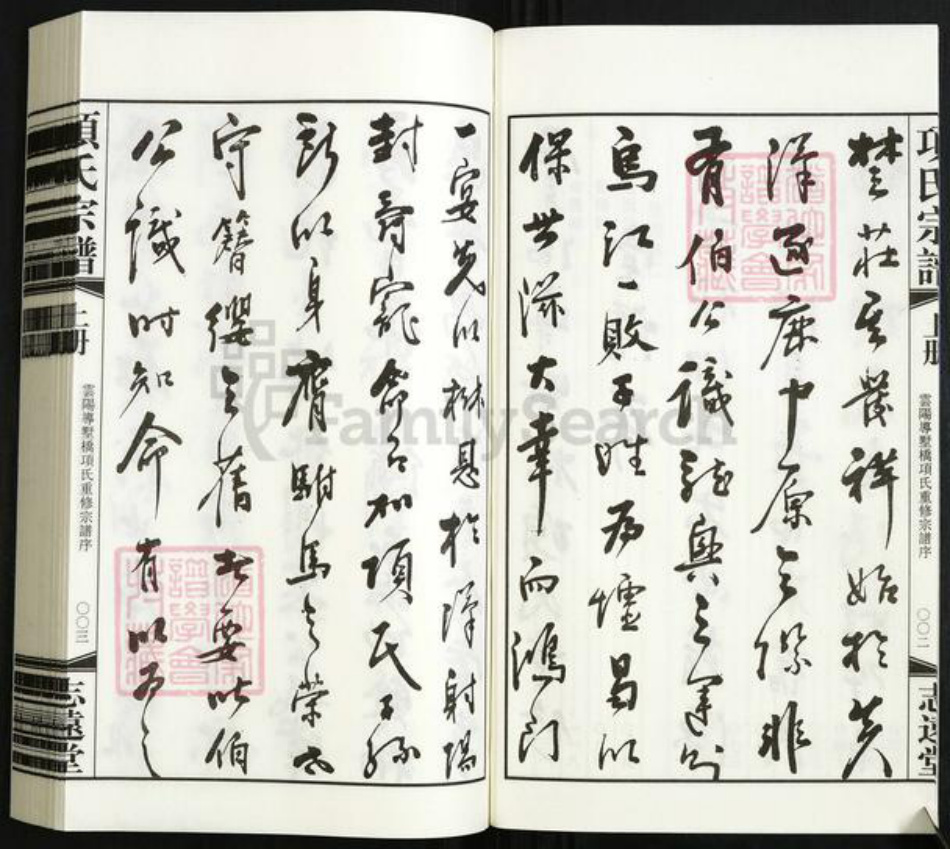 項氏宗譜 上册 雲陽導墅橋項氏重修宗譜序 〇〇二 志遠堂
楚莊王發祥始於
漢逐鹿中原之際非
有伯公識龍興之運則
烏江一敗子姓為墟曷以
保世滋大幸而鴻門
一宴先以 恩於漢射陽
封爵寵命 加項氏子孫
以身膺駙馬之榮也
守簪纓之舊者要皆伯
公識時知命有以為之
項氏宗譜 上册 雲陽導墅橋項氏重修宗譜序 〇〇三 志遠堂
FamilySearch